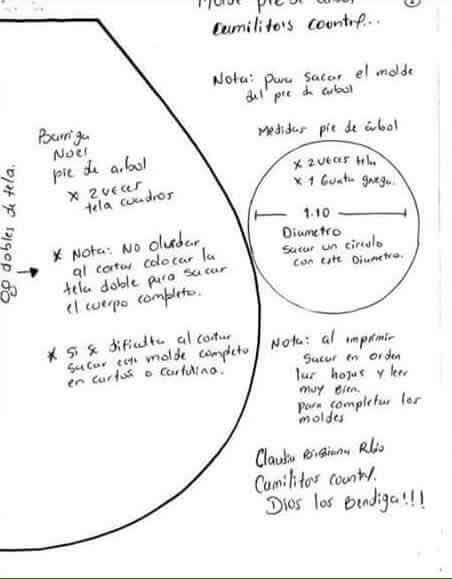 Molde pie de arbol
Camilitos country...
Nota: para sacar el molde
del pie de arbol
Medidas pie de árbol
x 2 veces tela
x 1 Guata gruega.
1.10
Diametro
sacar un circulo
con este Diametro.
Barriga
Noel
pie de arbol
x 2 veces
tela cuadros
ojo dobles de tela.
* Nota: No olvidar
al cortar colocar la
tela doble para sacar
el cuerpo completo.
* Si se dificulta al cortar
sacar este molde completo
en carton o cartulina.
Nota: al imprimir
sacar en orden
las hojas y leer
muy bien.
para completar los
moldes
Claudia
Camilitos country.
Dios los Bendiga!!!